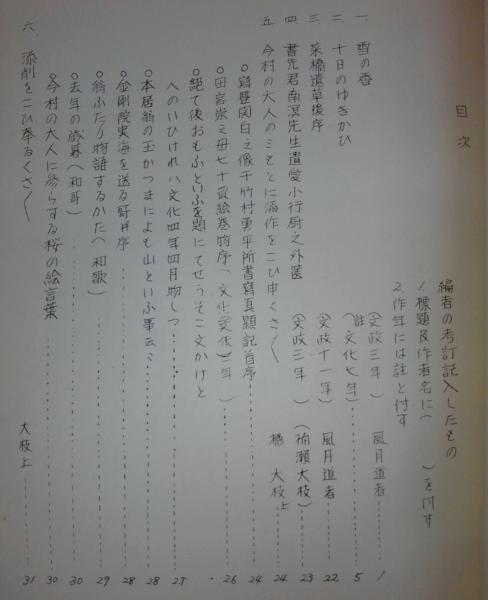 目次
編者の考訂記入したもの
1. 標題及作者名に（　）を付す
2. 作年には註と付す
一、雪の香 （文政三年） 風月道者 1
二、十日のゆきかひ 註（文化七年） 5
三、菜橋遺草後序 （文政十一年） 風月道者 22
四、書先君南溟先生遺愛小行厨之外匧 （文政三年） （楠瀬大枝） 23
五、今村の大人のみもとに添作をこひ申くさ〲 橘 大枝上 24
○寫豊関白之像于竹村勇平所書寫真顕記首序 24
○田宮崇之母七十賀絵巻物序（文化（文政）三年） 26
○絶て後おもふといふを題にてせうそこ文かけと
へのいひけれハ文化四年四月物しつ 27
○本居翁の玉かつまによも山といふ事云々 28
○金剛院実海を送る哥并序 28
○翁ふたり物語するかた（和歌） 29
○去年の歳暮（和哥） 30
○今村の大人に参らする桜の絵言葉 30
六、添削をこひ奉るくさ〲 大枝上 31